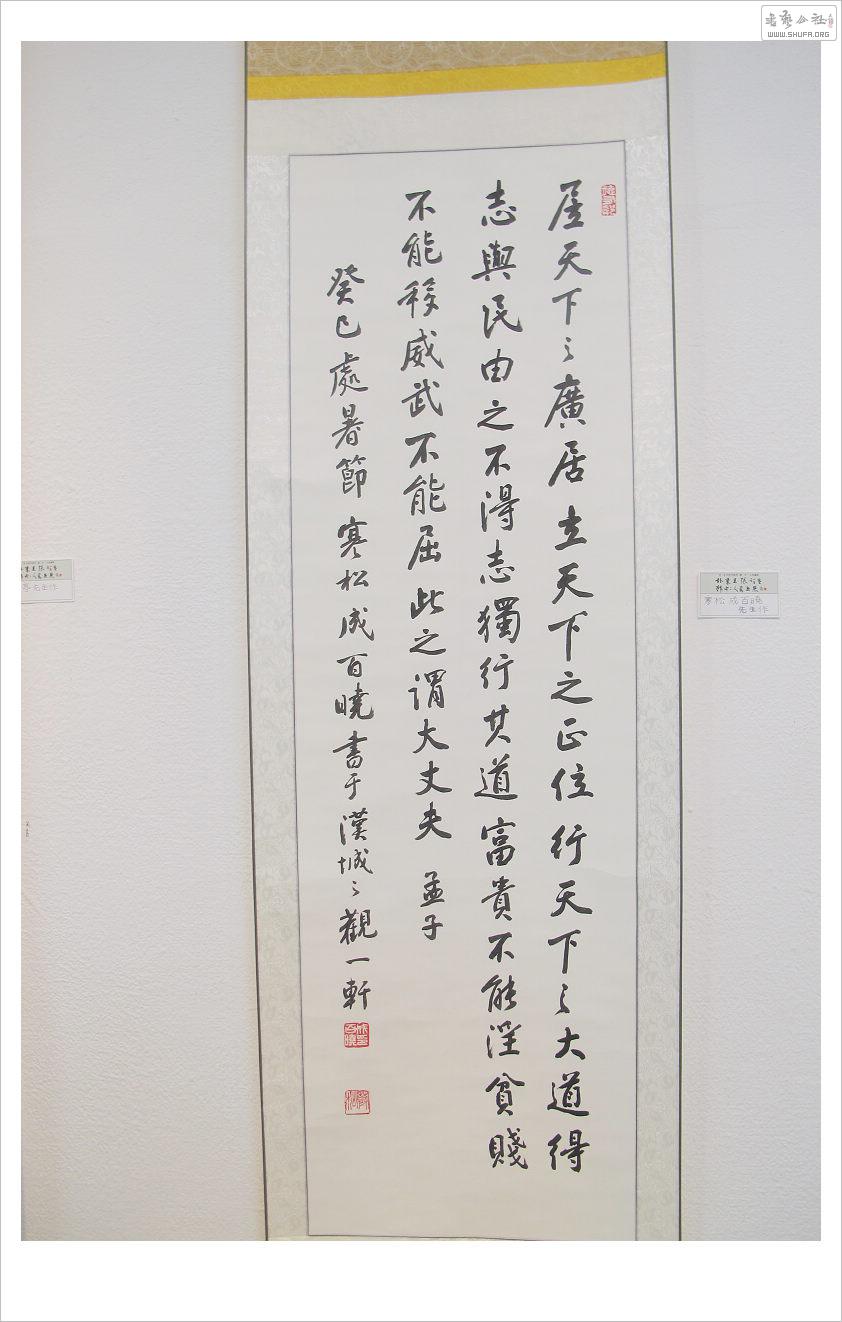 居天下之廣居立天下之正位行天下之大道得
志與民由之不得志獨行其道富貴不能淫貧賤
不能移威武不能屈此之謂大丈夫 孟子
癸巳處暑節 寒松成百曉書于漢城之觀一軒
寒松 成百曉
先生作
亭先生作
書藝公社
WWW.SHUFA.ORG